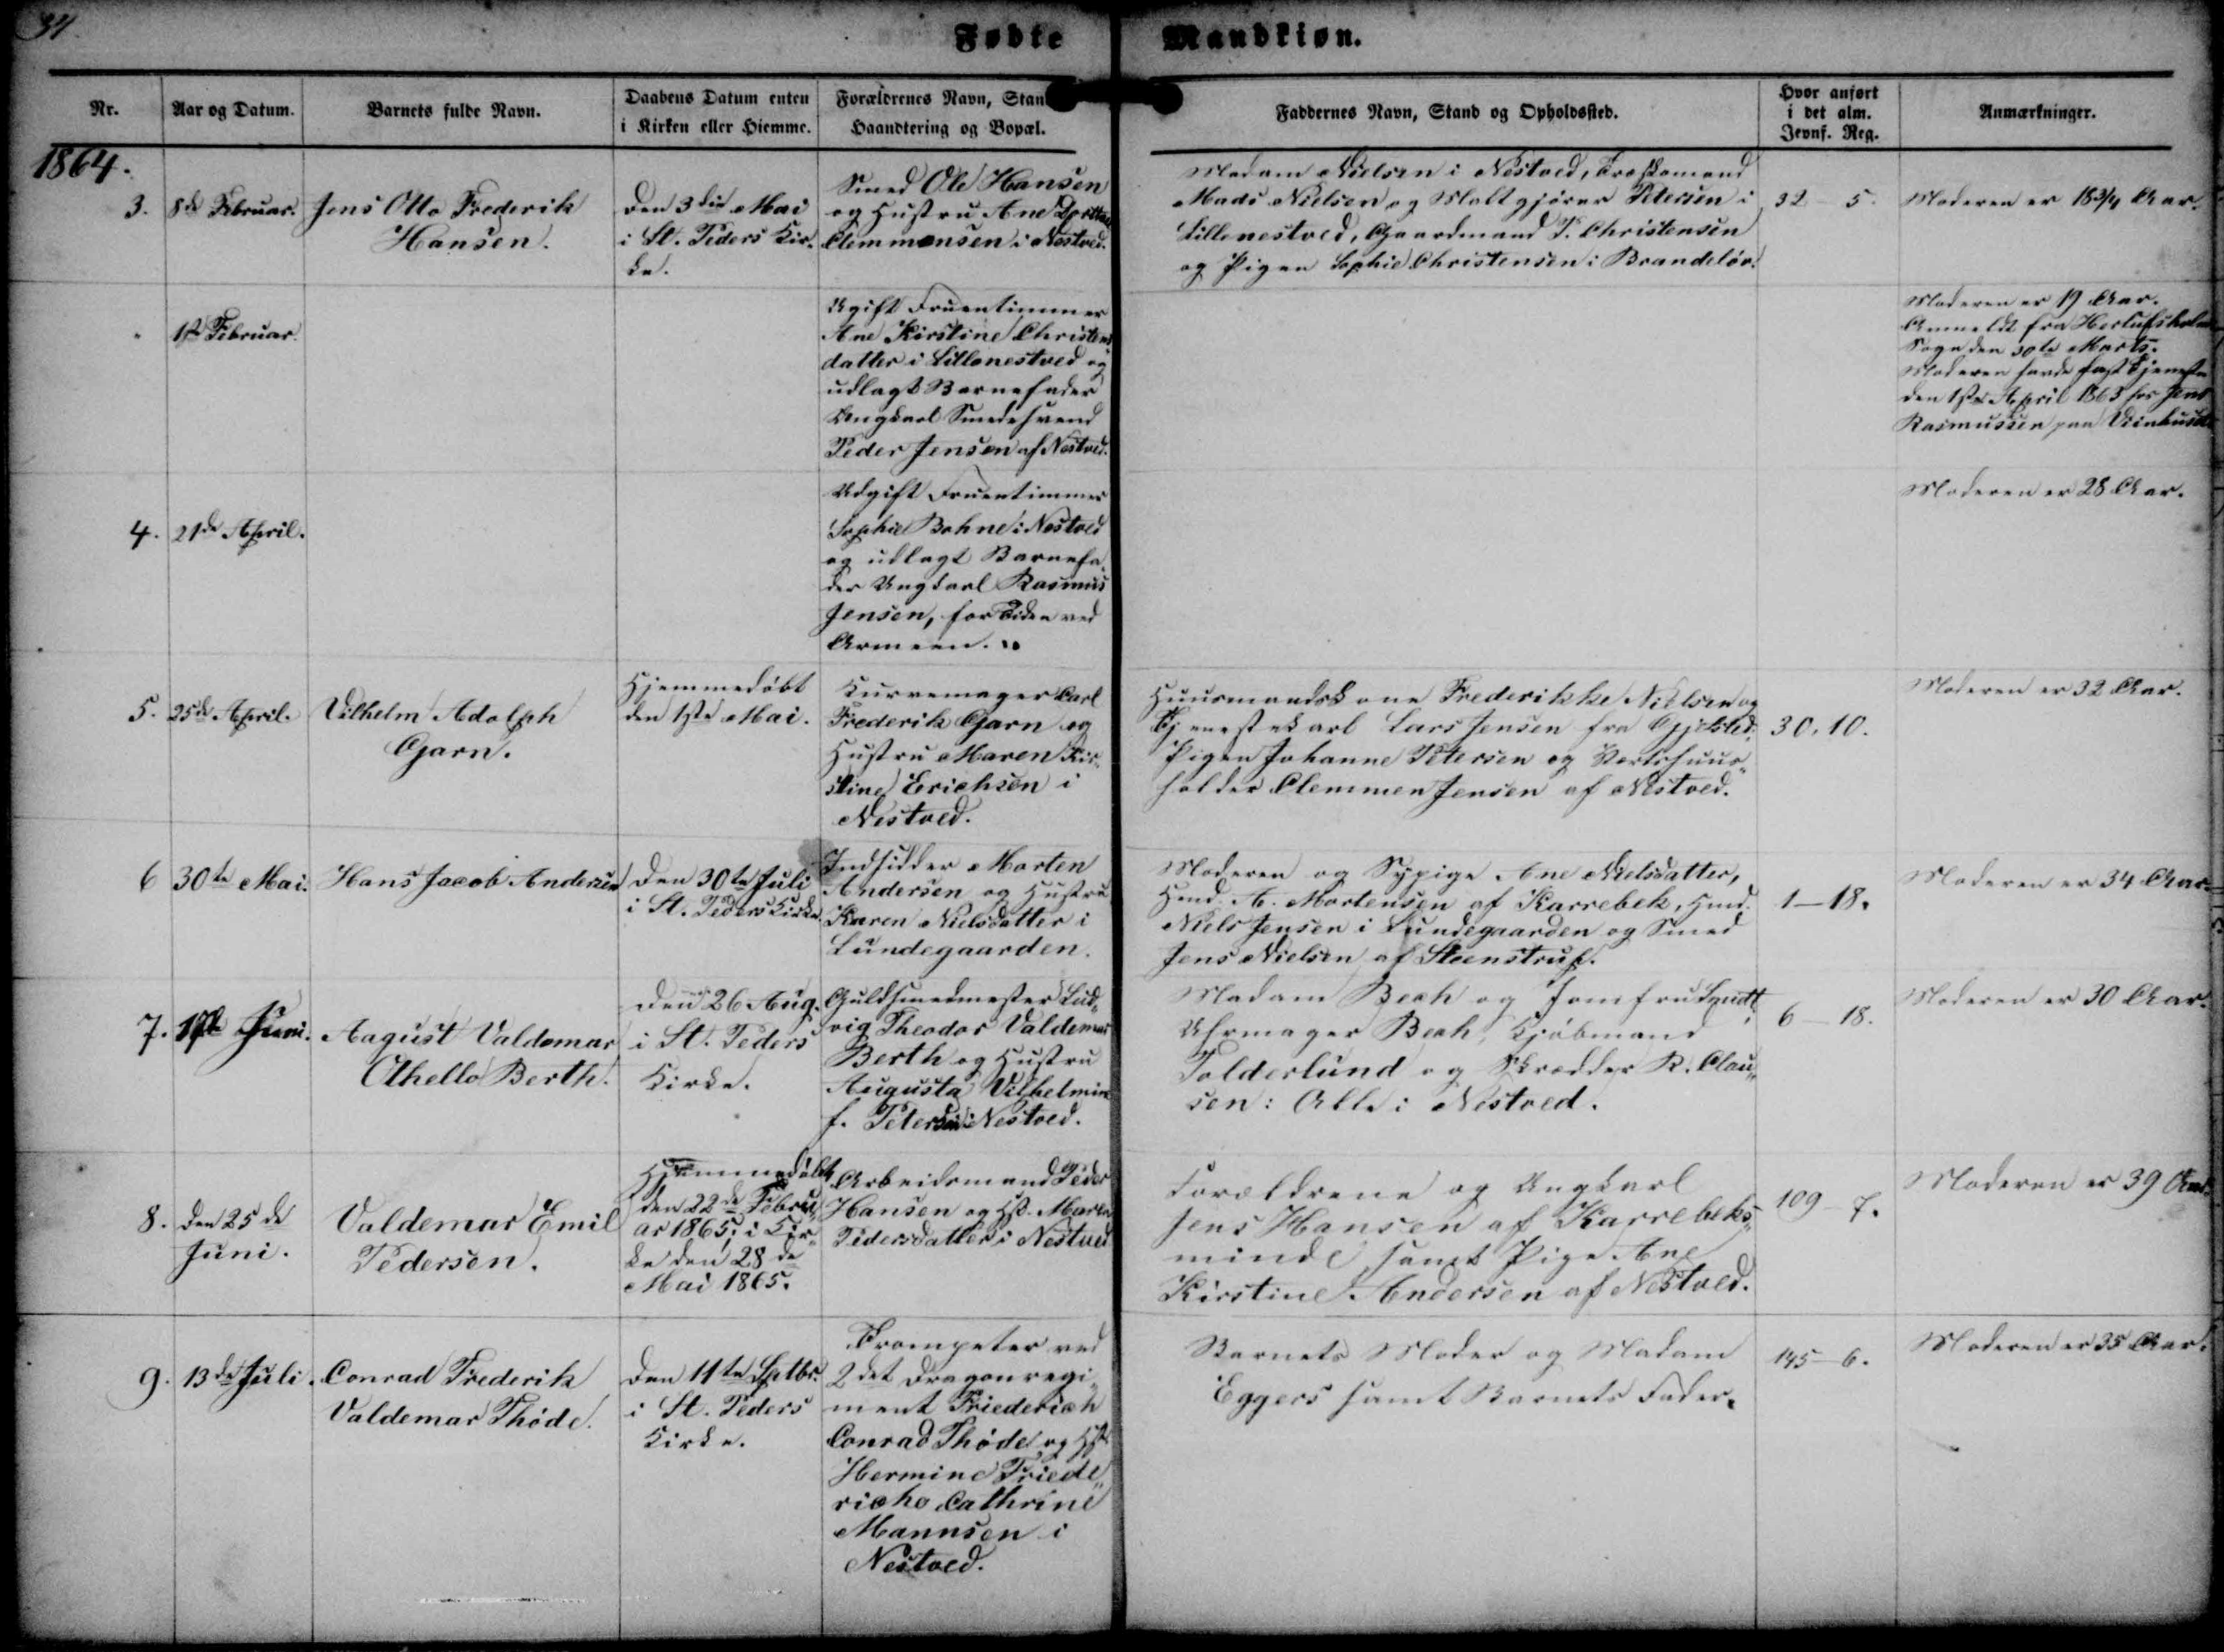 34.
Fødte Mandkiøn.
Nr.
Aar og Datum.
Barnets fulde Navn.
Daabens Datum enten
i Kirken eller Hiemme.
Forældrenes Navn, Stan
Haandtering og Bopæl.
Faddernes Navn, Stand og Opholdssted.
Hvor anført
i det alm.
Jevnf. Reg.
Anmærkninger.
1864.
3.
8de Februar.
Jens Otto Frederik
Hansen.
Den 3die Mai
i St. Peders Kir-
ke.
Smed Ole Hansen
og Hustru Ane Dorthea
Clemmensen i Nestved.
Madam Nielsen i Nestved,
Mads Nielsen og Maltgjører Petersen i
Lillenestved, Gaardmand P. Christensen
og Pigen Sophie Christensen i Brandeløv.
32 - 5.
Moderen er 18 3/4 Aar.
1ste Februar.
Ugift Fruentimmer
Ane Kirstine Christens
datter i Lillenestved og
udlagt Barnefader
Ungkarl Smedesvend
Peder Jensen af Nestved.
Moderen er 19 Aar.
Anmeldt fra Herlufsholm
Sogn den 30te Marts.
Moderen havde fast Tjeneste
den 1ste April 1863 hos Jens
Rasmussen paa
4.
21de April.
Udgift Fruentimmer
Sophie Bohne i Nestved
og udlagt Barnefa-
der Ungkarl Rasmus
Jensen, for Tiden ved
Armeen.
Moderen er 28 Aar.
5.
25de April.
Vilhelm Adolph
Garn.
Hjemmedøbt
den 1ste Mai.
Kurvemager Carl
Frederik Garn og
Hustru Maren Kir-
stine Erichsen i
Nestved.
Huusmandskone Frederikke Nielsen og
Tjenestekarl Lars Jensen fra
Pigen Johanne Petersen og Vertshuus-
holder Clemmen Jensen af Nestved.
30. 10.
Moderen er 32 Aar.
6
30te Mai.
Hans Jacob Andersen
Den 30te Juli
i St. Peders Kirke.
Indsidder Morten
Andersen og Hustru
Karen Nielsdatter i
Lundegaarden.
Moderen og Sypige Ane Nielsdatter,
Hmd. A. Mortensen af Karrebek, Hmd.
Niels Jensen i Lundegaarden og Smed
Jens Nielsen af Steenstrup.
1 - 18.
Moderen er 34 Aar
7.
17de Juni.
August Valdemar
Othello Berth.
Den 26 Aug.
i St. Peders
Kirke.
Guldsmedmester Lud-
vig Theodor Valdemar
Berth og Hustru
Augusta Vilhelmine
f. Petersen i Nestved.
Madam Bech og Jomfru
Uhrmager Bech, Kjøbmand
Tolderlund og Skrædder R. Clau-
sen: Alle i Nestved.
6 - 18.
Moderen er 30 Aar.
8.
Den 25de
Juni.
Valdemar Emil
Pedersen.
Hjemmedøbt
den 22de Febru-
ar 1865; i Kir-
ke den 28de
Mai 1865.
Arbeidsmand Peder
Hansen og Hst. Maren
Pedersdatter i Nestved
Forældrene og Ungkarl
Jens Hansen af Karrebeks-
minde samt Pige Ane
Kirstine Andersen af Nestved.
109 - 7.
Moderen er 39 Aar.
9.
13de Juli.
Conrad Frederik
Valdemar Thöde.
Den 11te Septbr.
i St. Peders
Kirke.
Trompeter ved
2det Dragonregi-
ment Friederich
Conrad Thöde og Hst.
Hermine Friede-
richo Cathrine
Mannsen i
Nestved.
Barnets Moder og Madam
Eggers samt Barnets Fader.
145 - 6.
Moderen er 35 Aar.